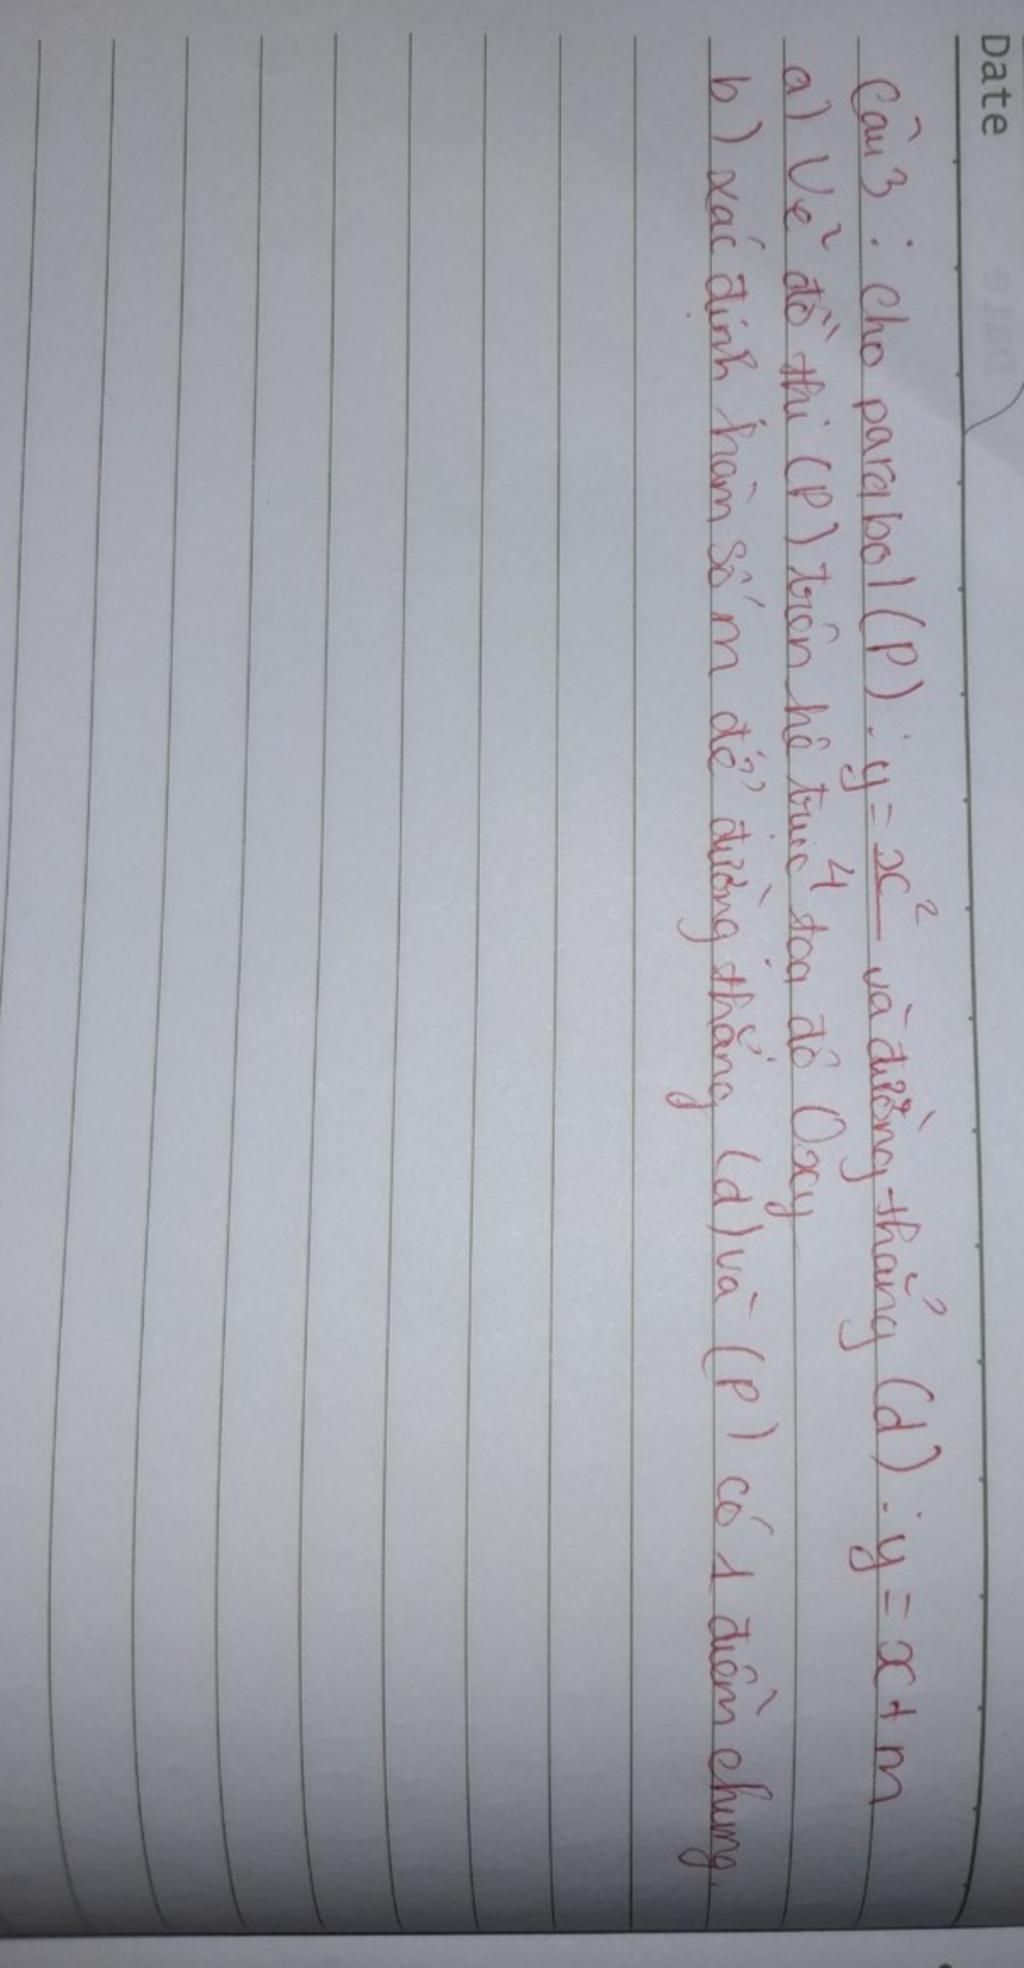 Date
Câu 3 : Cho parabol (P) : y = x²/4 và đường thẳng (d) : y = x + m
a) Vẽ đồ thị (P) trên hệ trục tọa độ Oxy
b) xác định hàm số m để đường thẳng (d) và (P) có 1 điểm chung.